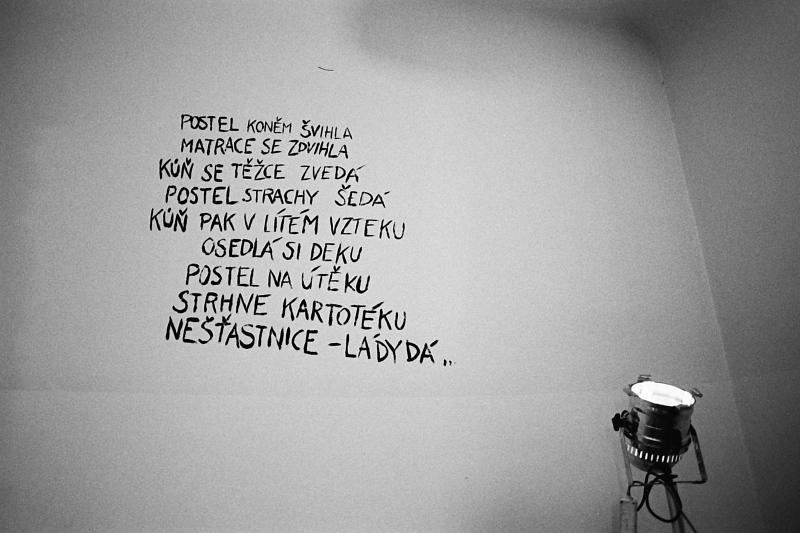 POSTEL KONĚM ŠVIHLA
MATRACE SE ZDVIHLA
KŮŇ SE TĚŽCE ZVEDÁ
POSTEL STRACHY ŠEDÁ
KŮŇ PAK V LÍTÉM VZTEKU
OSEDLÁ SI DEKU
POSTEL NA ÚTĚKU
STRHNE KARTOTÉKU
NEŠŤASTNICE - LÁDYDÁ...